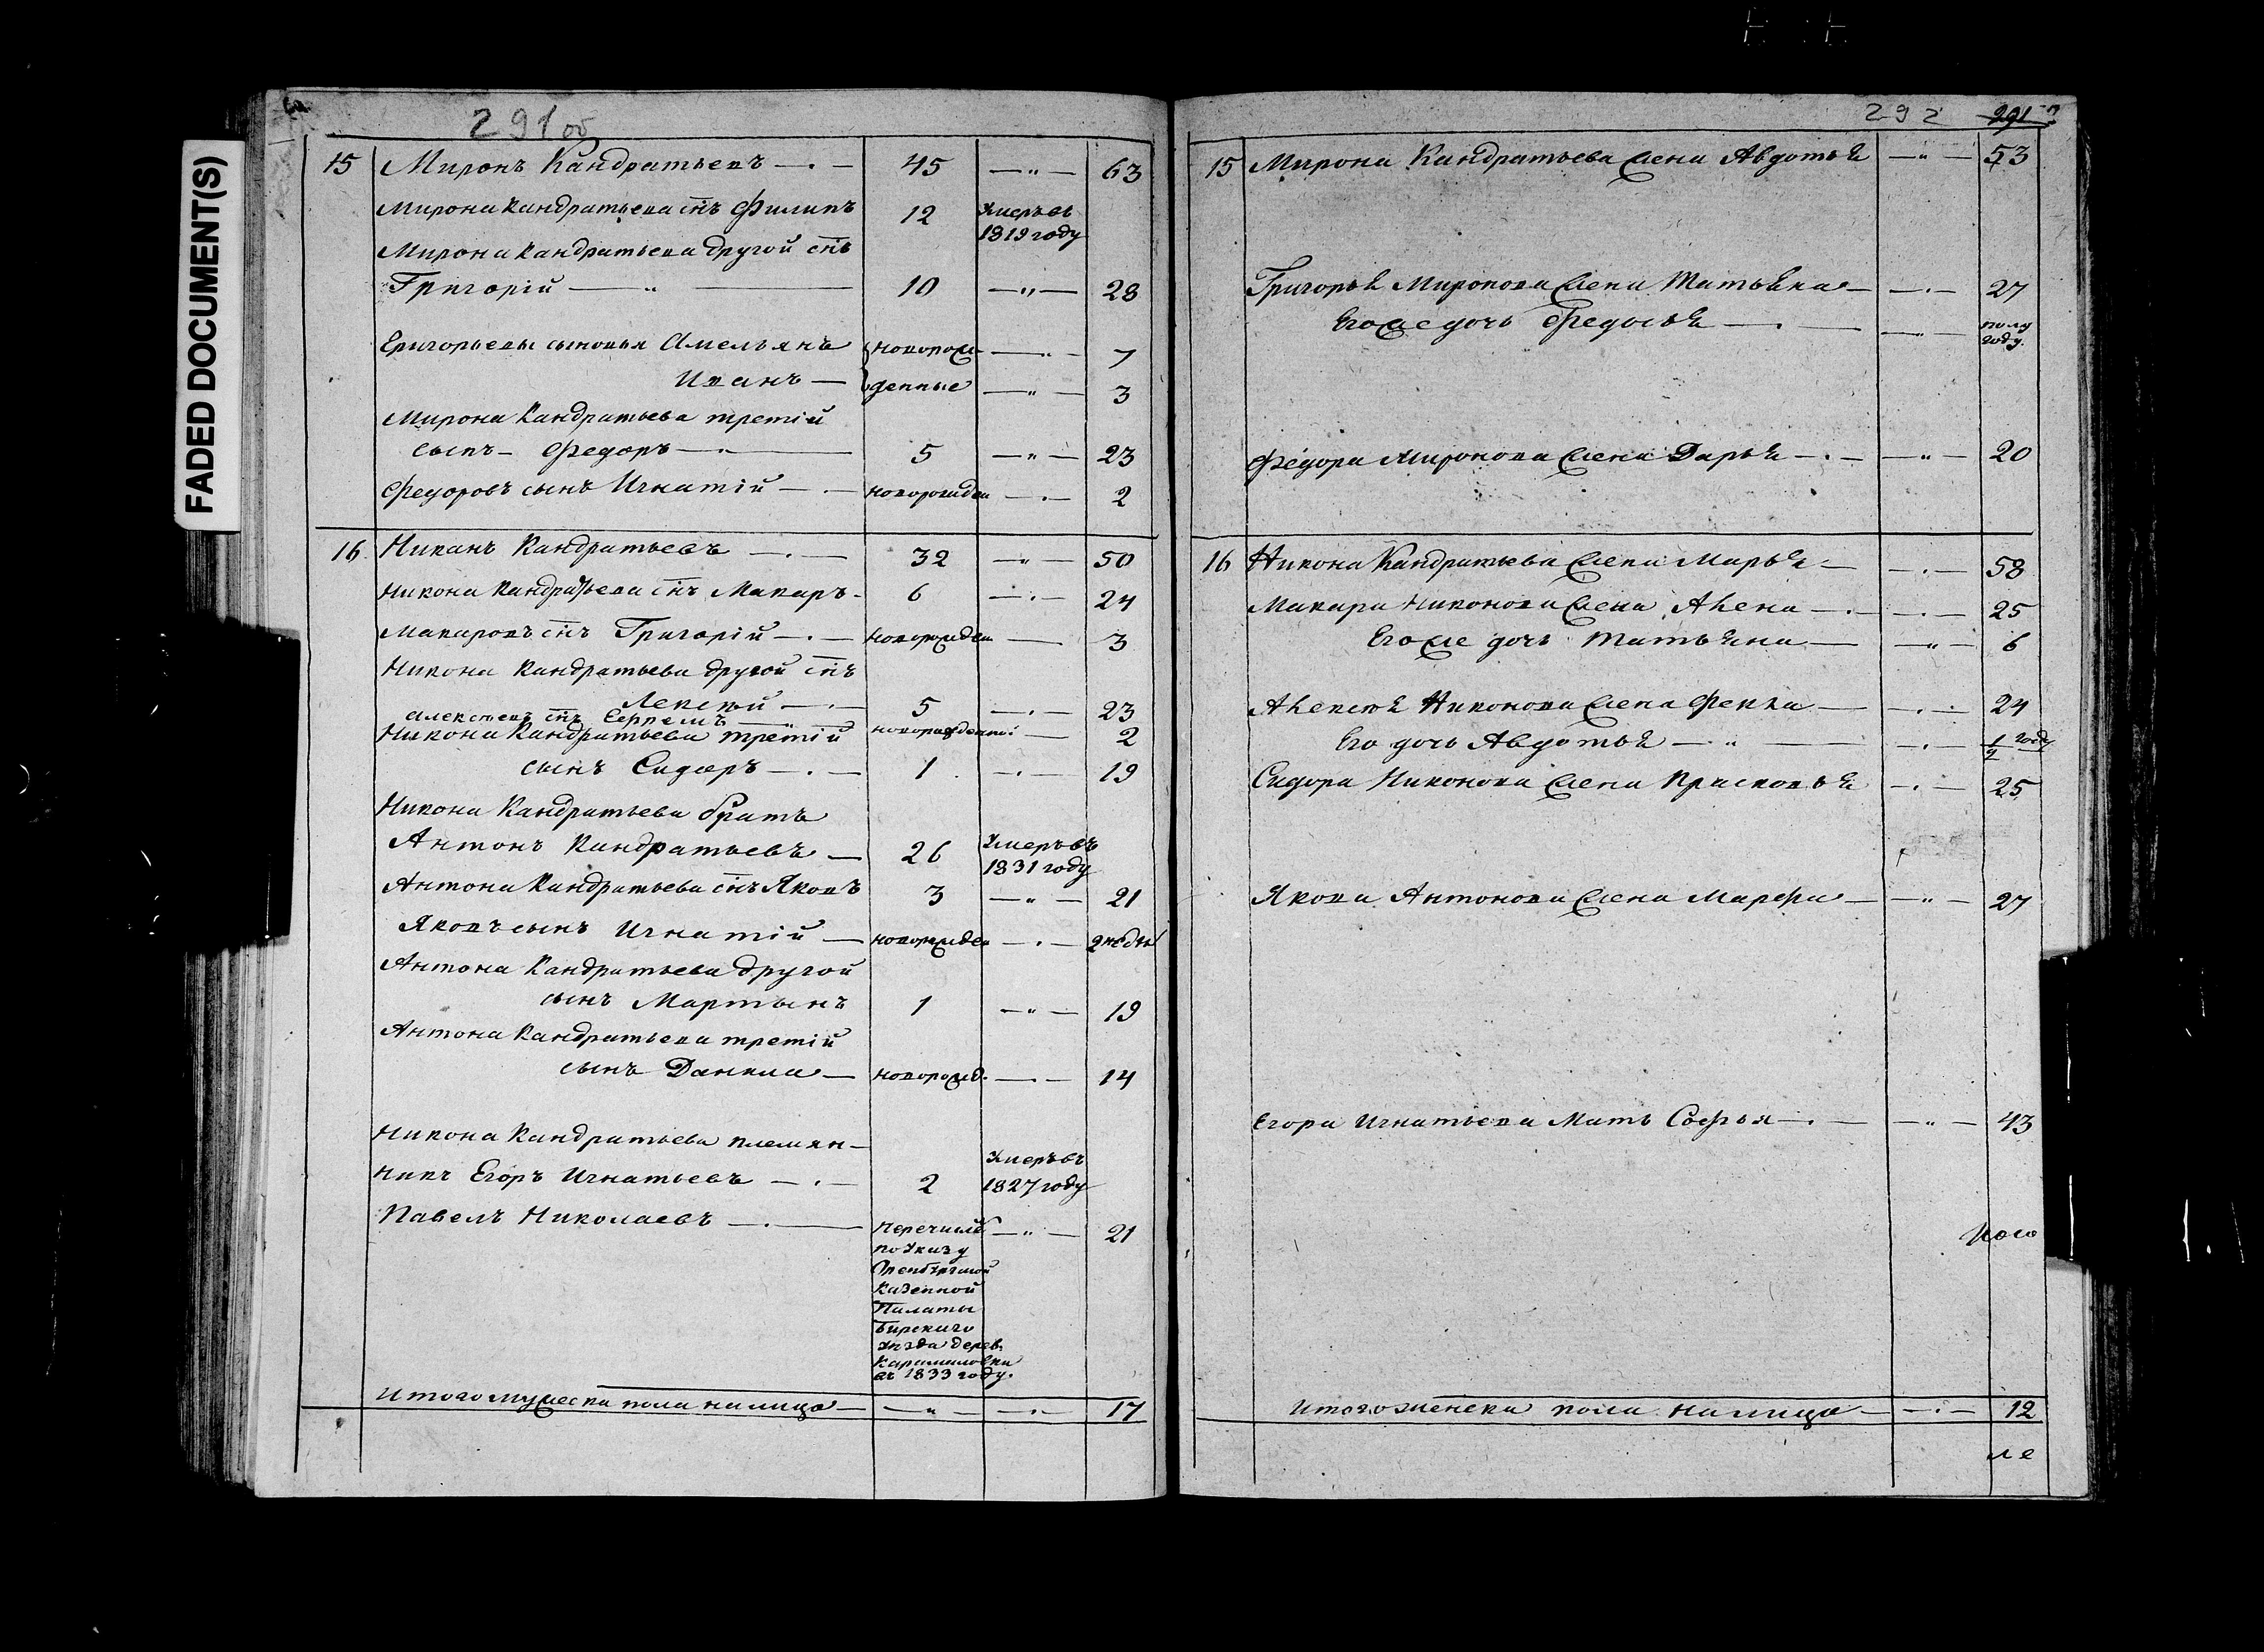 FADED DOCUMENT(S)
291 об
15 Миронъ Кандратьевъ 45 63
Мирона Кандратьева снъ Филипъ 12 Умеръ въ 1819 году
Мирона Кандратьева другой снъ
Григорій 10 28
Григорьевы сыновья Амельянъ новорож- 7
Иванъ денные 3
Мирона Кандратьева третій
сынъ Федоръ 5 23
Федоровъ сынъ Игнатій новорожден 2
16 Никанъ Кандратьевъ 32 50
Никона Кандратьева снъ Макаръ 6 24
Макаровъ снъ Григорій новорожден 3
Никона Кандратьева другой снъ
Лексей 5 23
Алексеевъ снъ новорожденной 2
Никона Кандратьева третій
сынъ Сидоръ 1 19
Никона Кандратьева братъ
Антонъ Кандратьевъ 26 Умеръ въ 1831 году
Антона Кандратьева снъ Яковъ 3 21
Яковъ сынъ Игнатій новорожден 2 недѣл
Антона Кандратьева другой
сынъ Мартынъ 1 19
Антона Кандратьева третій
сынъ Данила новорожд. 14
Никона Кандратьева племян-
никъ Егоръ Игнатьевъ 2 Умеръ въ 1827 году
Павелъ Николаевъ перечисле 21
по Указу
Оренбургской
Казенной
Палаты
Бирскаго
уѣзда дерев.
въ 1833 году.
Итого мужеска пола налицо 17
292 291
15 Мирона Кандратьева жена Авдотья 53
Григорья Миронова жена Татьяна 27
Его же дочь Федосья полу году
Федора Миронова жена Дарья 20
16 Никона Кандратьева жена Марья 58
Макара Никонова жена Алена 25
Его же дочь Татьяна 6
Алексея Никонова жена Фекла 24
Его дочь Авдотья 1/2 году
Сидора Никонова жена Прасковья 25
Якова Антонова жена Марфа 27
Егора Игнатьева Мать Софья 43
Итого женска пола налицо 12
ле